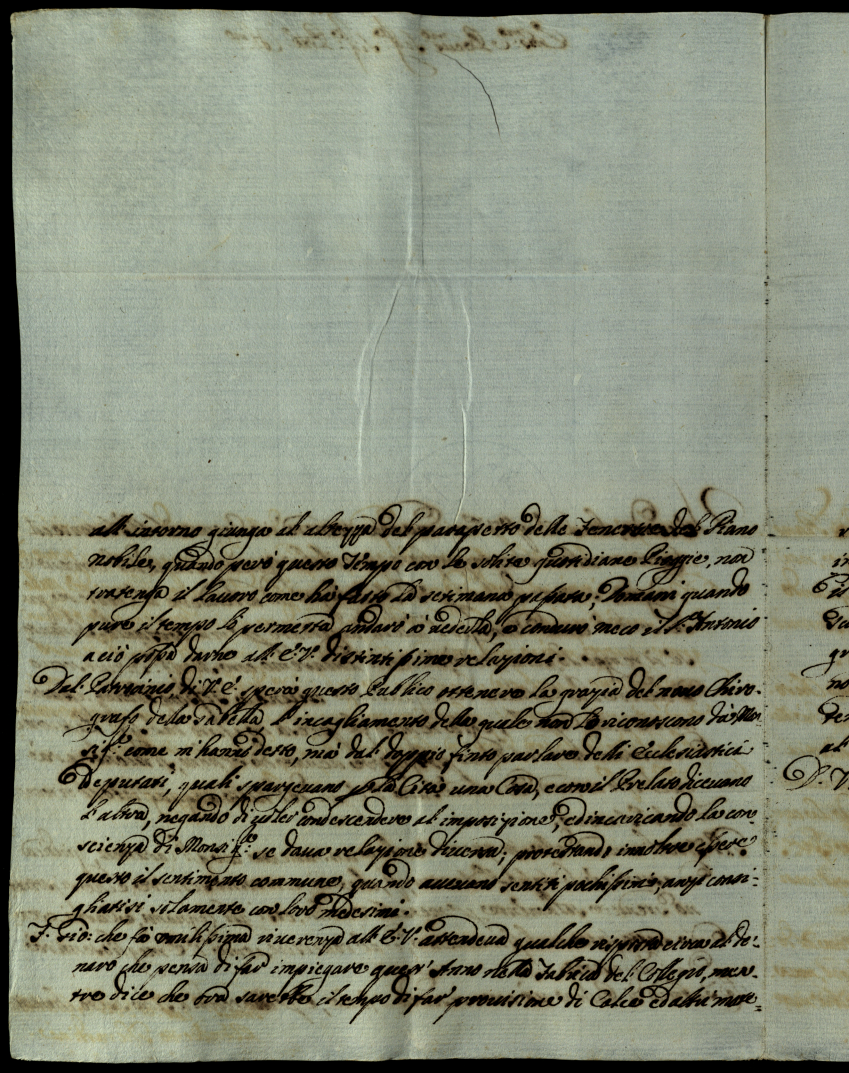 all'intorno giunga al altezza del parapetto delle Fenestre del Piano
nobile, quando però questo Tempo con le solite quotidiane Pioggie, non
tratenga il lauoro come ha fatto la setimana passata; Domani quando
pure il tempo lo permetta andarò a uederla, e condurò meco il Sr. Antonio
aciò possa darne all'E.V. distintissime relazioni.
Dal Patrocinio di V.E. spera questo Publico ottenere la grazia del nouo Chiro-
grafo della Gabella l'incagliamento della quale non lo riconoscono da Mon
sigr. come m'hanno detto, mà dal doppio finto parlare delli Ecclesiastici
Deputati, quali spargeuano per la Città una Cosa, e con il Prelato diceuano
l'altra, negando di uoler condescendere al imposizione, ed incaricando la con
scienza di Monsigr. se daua relazione diuersa; protestando innoltre essere
questo il sentimento commune, quando aueuano sentiti pochissimi, anzi consi-
gliatisi solamente con loro medesimi.
che fà umilissima riuerenza all'E.V. attendeua qualche risposta circa al de-
naro che pensa di far impiegare quest'Anno nella Fabrica del Collegio, men-
tre dice che ora sarebbe il tempo di far prouisione di Calce ed altri mate-